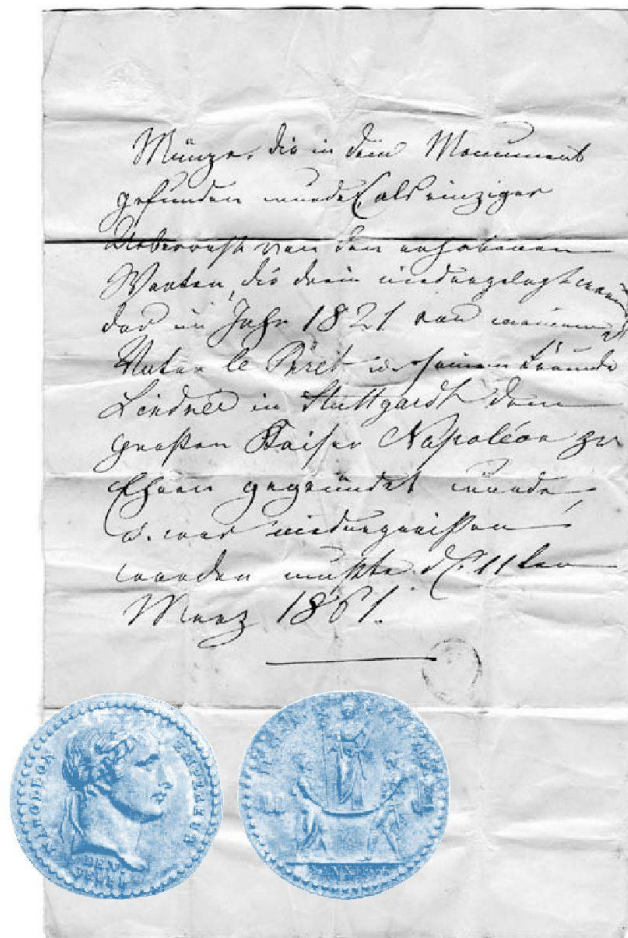 Münze, die in dem Monument
gefunden wurde (als einziger
Ueberrest von den erhabenen
Worten, die drein niedergelegt waren)
das im Jahr 1821 von meinem
Vater le Prêt u. seinem Freunde
Lindner in Stuttgardt dem
großen Kaiser Napoléon zu
Ehren gegründet wurde,
u. niedergerissen
werden mußte. d. 11ten
Merz 1861.
NAPOLEON EMPEREUR